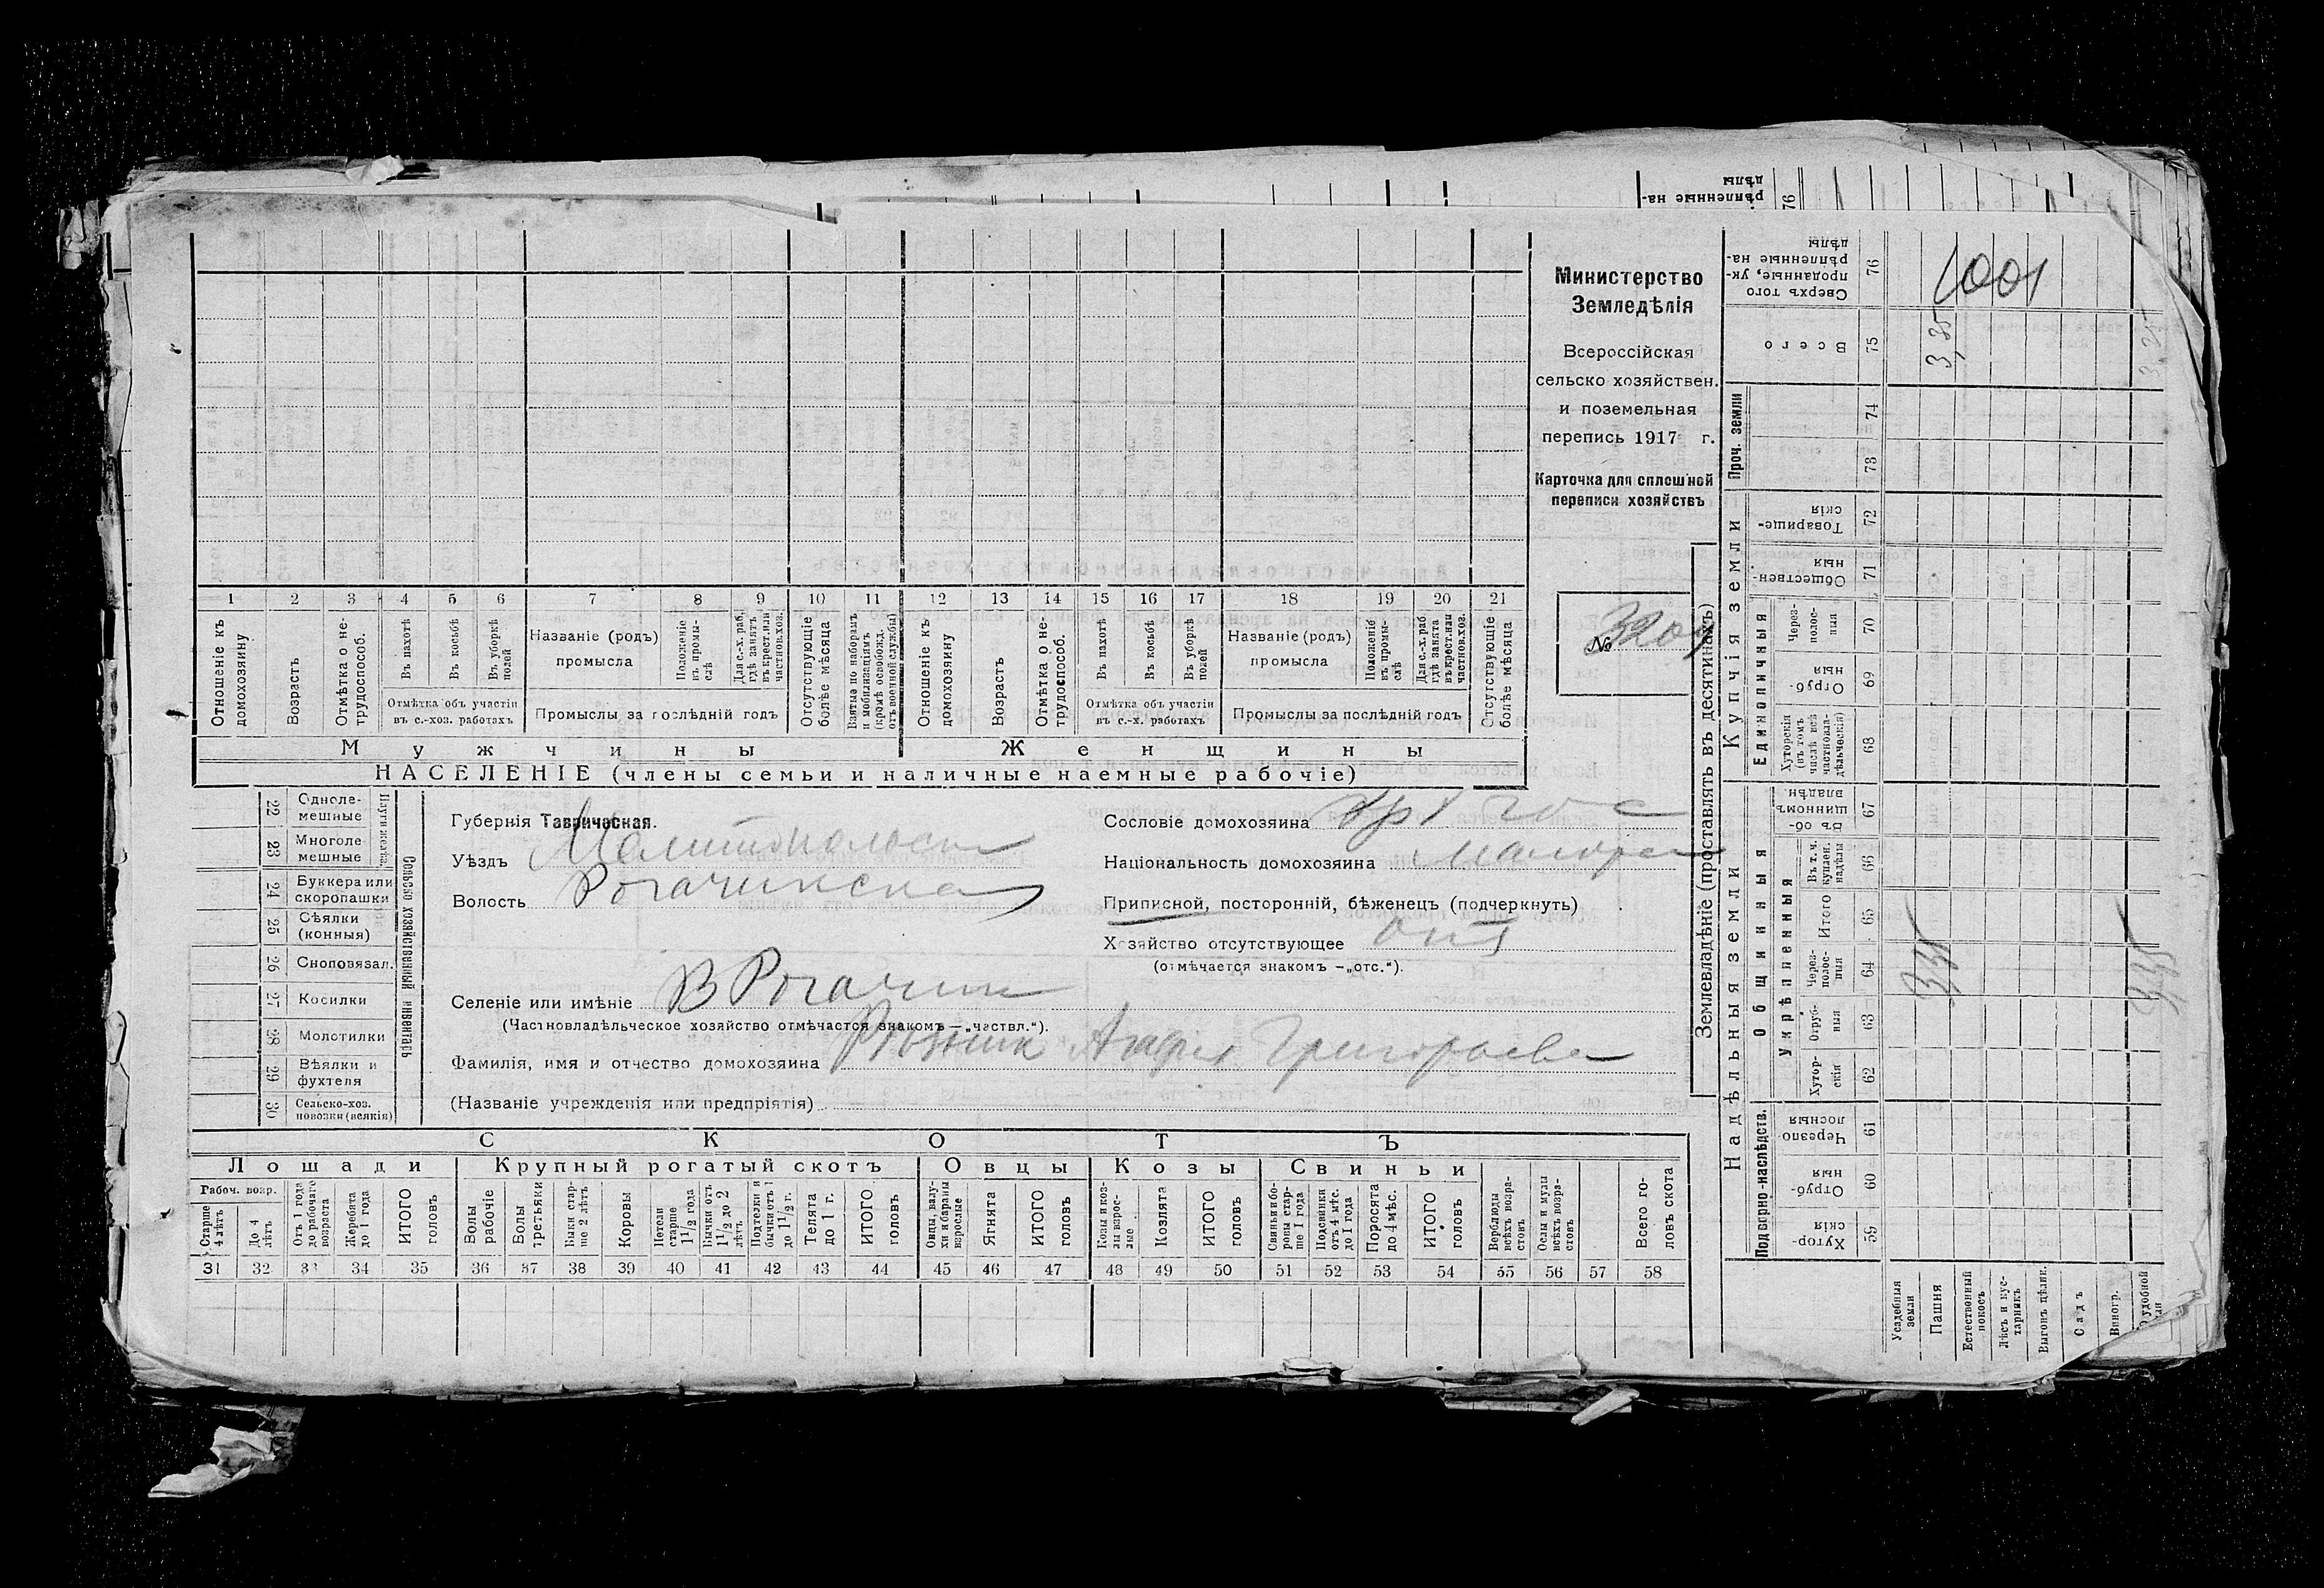 рѣпленные на-
дѣлы
76
Министерство
Земледѣлія
Всероссійская
сельско хозяйствен.
и поземельная
перепись 1917 г.
Карточка для сплошной
переписи хозяйствъ
№ 3204
1 2 3 4 5 6 7 8 9 10 11 12 13 14 15 16 17 18 19 20 21
Отношеніе къ домохозяину
Возрастъ
Отмѣтка о не-трудоспособ.
Въ пахотѣ
Въ косьбѣ
Въ уборкѣ полей
Отмѣтка объ участіи
въ с.-хоз. работахъ
Названіе (родъ)
промысла
Положеніе въ промы-слѣ
Для с.-х. раб. гдѣ занятъ въ крест. или частновл. хоз.
Промыслы за послѣдній годъ
Отсутствующіе болѣе мѣсяца
Взятые по наборамъ и мобилизаціямъ (кромѣ освобожд. отъ военной службы)
Отношеніе къ домохозяину
Возрастъ
Отмѣтка о не-трудоспособ.
Въ пахотѣ
Въ косьбѣ
Въ уборкѣ полей
Отмѣтка объ участіи
въ с.-х. работахъ
Названіе (родъ)
промысла
Положеніе въ промы-слѣ
Для с.-х. раб. гдѣ занята въ крест. или частновл. хоз.
Промыслы за послѣдній годъ
Отсутствующіе болѣе мѣсяца
Мужчины Женщины
НАСЕЛЕНІЕ (члены семьи и наличные наемные рабочіе)
22 Одноле-мешные
23 Многоле-мешные
24 Буккера или скоропашки
25 Сѣялки (конныя)
26 Сноповязал.
27 Косилки
28 Молотилки
29 Вѣялки и фухтеля
30 Сельско-хоз. повозки (всякія)
Сельско хозяйственный инвентарь
Губернія Таврическая.
Уѣздъ Мелитопольск
Волость Рогачикская
Селеніе или имѣніе В Рогачик
(Частновладѣльческое хозяйство отмѣчается знакомъ — „частвл.“).
Фамилія, имя и отчество домохозяина Агафія Григорьева
(Названіе учрежденія или предпріятія)
Сословіе домохозяина
Національность домохозяина малорос
Приписной, посторонній, бѣженецъ (подчеркнуть)
Хозяйство отсутствующее отс
(отмѣчается знакомъ — „отс.“).
СКОТЪ
Лошади Крупный рогатый скотъ Овцы Козы Свиньи
Рабоч. возр.
Старше 4 лѣтъ
До 4 лѣтъ
Отъ 1 года до рабочаго возраста
Жеребята до 1 года
ИТОГО головъ
Волы рабочіе
Волы третьяки
Быки стар-ше 2 лѣтъ
Коровы
Нетели старше 1 1/2 года
Бычки отъ 1 1/2 до 2 лѣтъ
Подтелки и бычки отъ 1 до 1 1/2 г.
Телята до 1 г.
ИТОГО головъ
Овцы, валу-хи и бараны взрослые
Ягнята
ИТОГО головъ
Козы и коз-лы взрос-лые
Козлята
ИТОГО головъ
Свиньи и бо-ровы стар-ше 1 года
Подсвинки отъ 4 мѣс. до 1 года
Поросята до 4 мѣс.
ИТОГО головъ
Верблюды всѣхъ возра-стовъ
Ослы и мулы всѣхъ возра-стовъ
Всего го-ловъ скота
31 32 33 34 35 36 37 38 39 40 41 42 43 44 45 46 47 48 49 50 51 52 53 54 55 56 57 58
Землевладѣніе (проставлять въ десятинахъ)
Надѣльныя земли
Купчія земли
Проч. земли
Подворно-наслѣдств.
Общинныя
Укрѣпленныя
Единоличныя
Хутор-скія 59
Отруб-ныя 60
Черезпо-лосныя 61
Хутор-скія 62
Отруб-ныя 63
Через-полос-ныя 64
Итого 65
Въ т. ч. куплен. надѣлы 66
Въ об-щинномъ владѣн. 67
Хуторскія (въ томъ числѣ всѣ частновла-дѣльческія) 68
Отруб-ныя 69
Через-полос-ныя 70
Обществен-ныя 71
Товарище-скія 72
73
74
Всего 75
Сверхъ того проданные, ук-рѣпленные на-дѣлы 76
Усадебныя земли
Пашня
Естественный покосъ
Лѣсъ и кус-тарникъ
Выгонъ цѣлин.
Садъ
Виногр.
удобной
1001
3,35
3,35